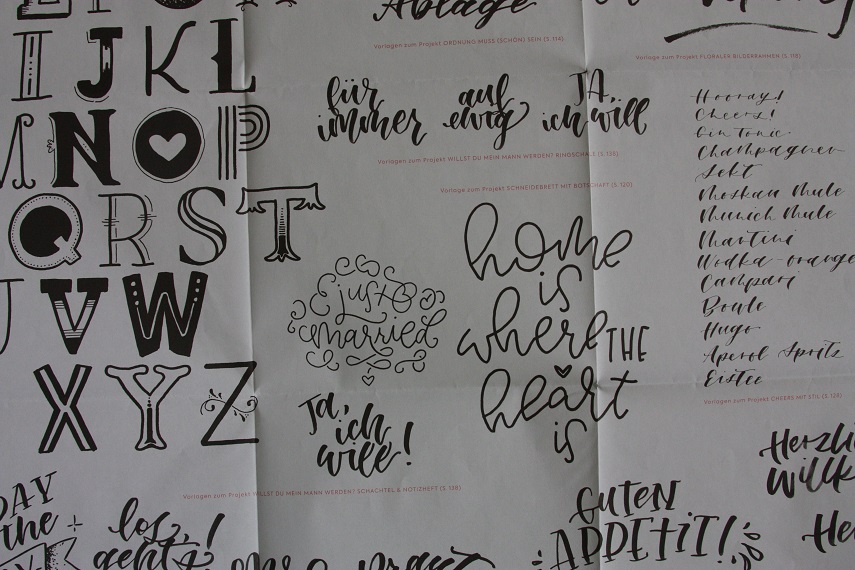 I J K L
N O P
Q R S T
V W
X Y Z
Ablage
Vorlagen zum Projekt ORDNUNG MUSS (SCHÖN) SEIN (S. 114)
für
immer
auf
ewig
JA,
ich will
Vorlagen zum Projekt WILLST DU MEIN MANN WERDEN? RINGSCHALE (S. 138)
Vorlage zum Projekt SCHNEIDEBRETT MIT BOTSCHAFT (S. 120)
just
married
home
is
where THE
heart
is
Ja,
ich
will!
Vorlagen zum Projekt WILLST DU MEIN MANN WERDEN? SCHACHTEL & NOTIZHEFT (S. 138)
DAY
the
los
geht's!
GUTEN
APPETIT!
Vorlage zum Projekt FLORALER BILDERRAHMEN (S. 118)
Hooray!
Cheers!
Gin Tonic
Champagner
Sekt
Moskau Mule
Munich Mule
Martini
Wodka-Orange
Campari
Bowle
Hugo
Aperol Spritz
Eistee
Vorlagen zum Projekt CHEERS MIT STIL (S. 125)
Herzli
willk
He